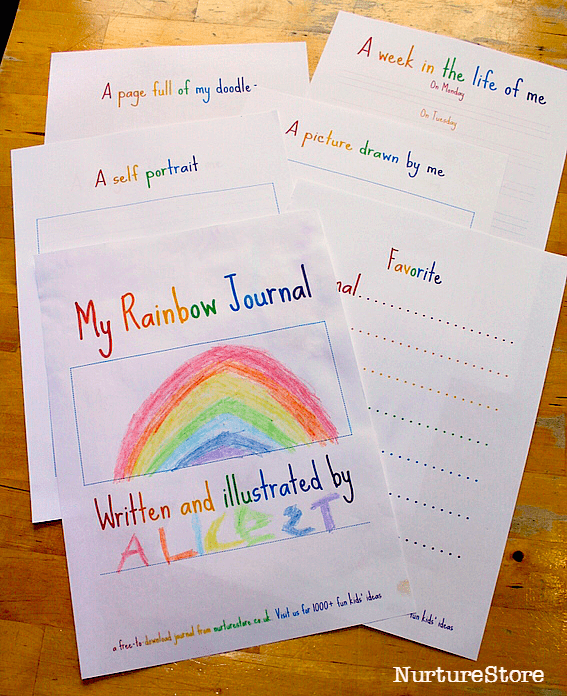 A page full of my doodle-
A week in the life of me
On Monday
On Tuesday
A self portrait
A picture drawn by me
Favorite
nal..................
My Rainbow Journal
Written and illustrated by
ALICE
a free-to-download journal from nurturestore.co.uk. Visit us for 1000+ fun kids' ideas
fun kids' ideas
NurtureStore